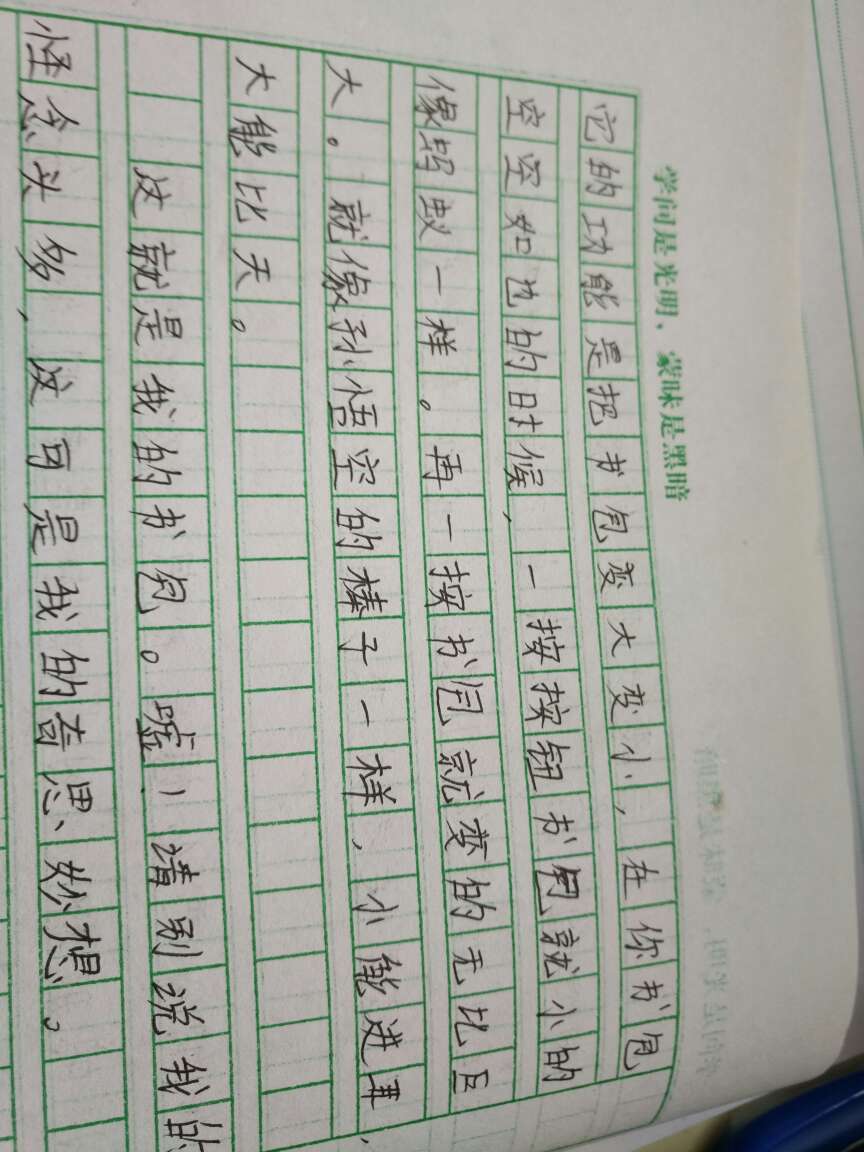 学问是光明、蒙昧是黑暗
它的功能是把书包变大变小，在你书包
空空如也的时候，一按按钮书包就小的
像蚂蚁一样。再一按书包就变的无比巨
大。就像孙悟空的棒子一样，小能进耳、
大能比天。
这就是我的书包。嘘！请别说我的
怪念头多，这可是我的奇思妙想。